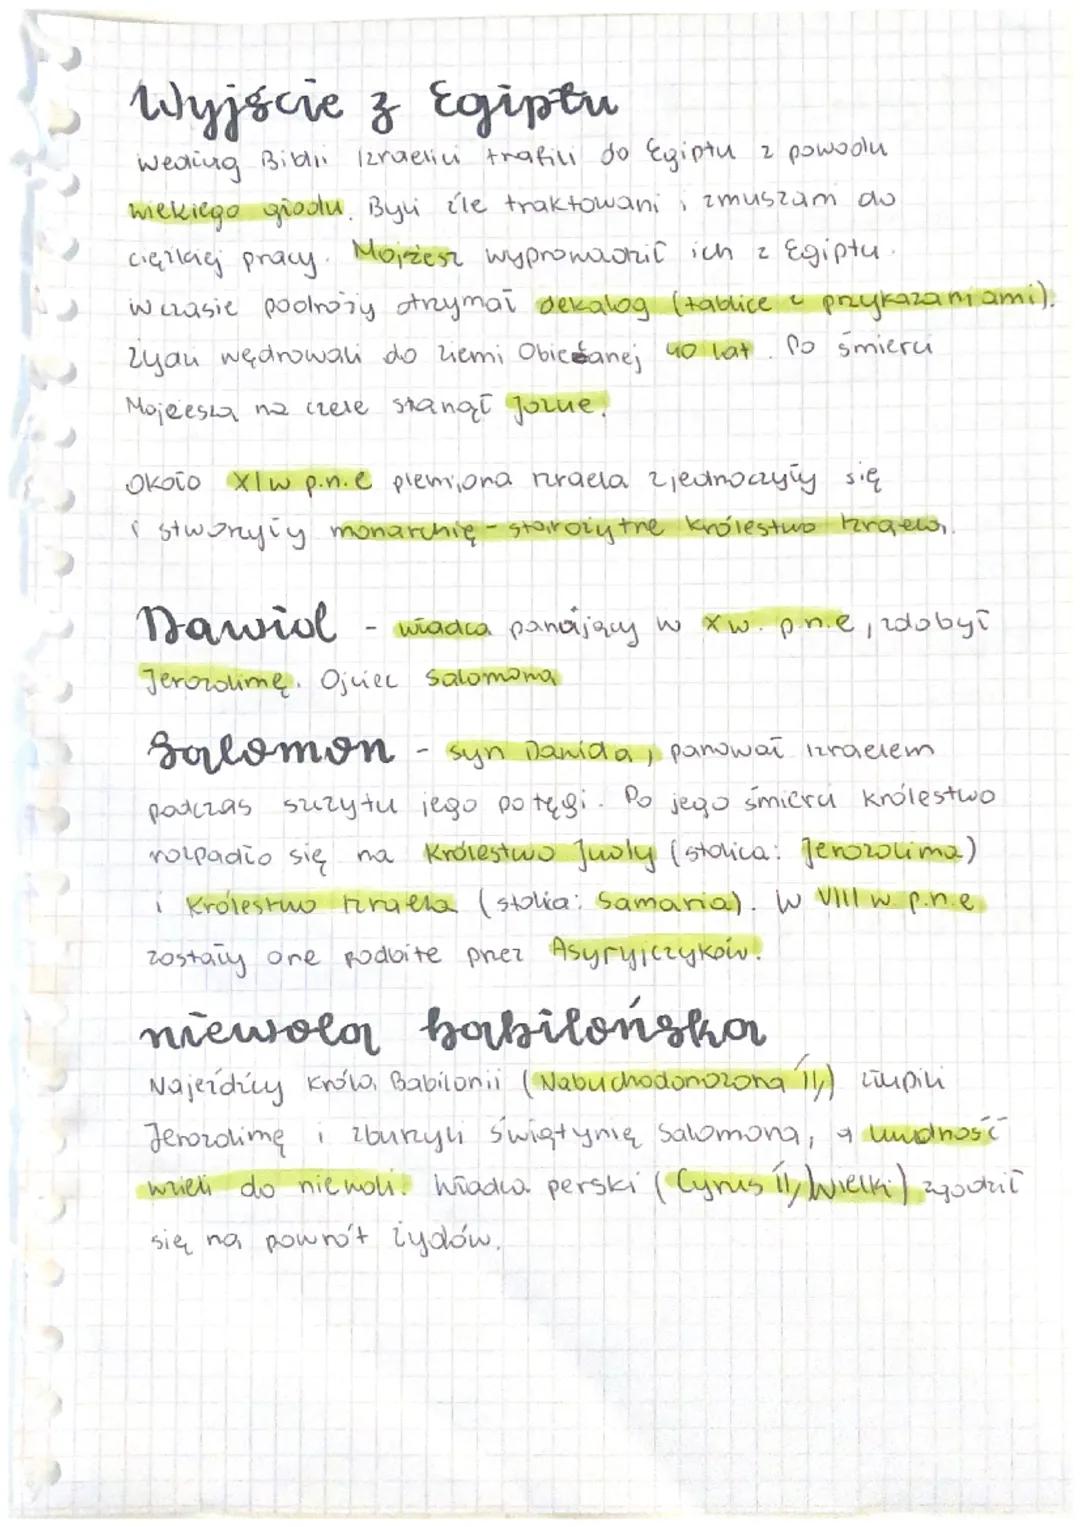 Wyjście z Egiptu
według Biblii Izraelici trafili do Egiptu z powodu
wielkiego głodu. Byli źle traktowani i zmuszani do
ciężkiej pracy. Mojżesz wyprowadził ich z Egiptu.
W czasie podróży otrzymał dekalog (tablice z przykazaniami).
Żydzi wędrowali do ziemi Obiecanej 40 lat. Po śmierci
Mojżesza na czele stanął Jozue.
Około XI w p.n.e plemiona Izraela zjednoczyły się
i stworzyły monarchię - starożytne Królestwo Izraela.
Dawid - władca panujący w X w. p.n.e, zdobył
Jerozolimę. Ojciec Salomona
Salomon - syn Dawida, panował Izraelem
podczas szczytu jego potęgi. Po jego śmierci królestwo
rozpadło się na Królestwo Judy (stolica: Jerozolima)
i Królestwo Izraela (stolica: Samaria). W VIII w p.n.e
zostały one podbite przez Asyryjczyków.
niewola babilońska
Najeźdźcy króla Babilonii (Nabuchodonozora II,) złupili
Jerozolimę i zburzyli świątynię Salomona, a ludność
wzieli do niewoli. Władca perski (Cyrus II, Wielki) zgodził
się na powrót żydów.